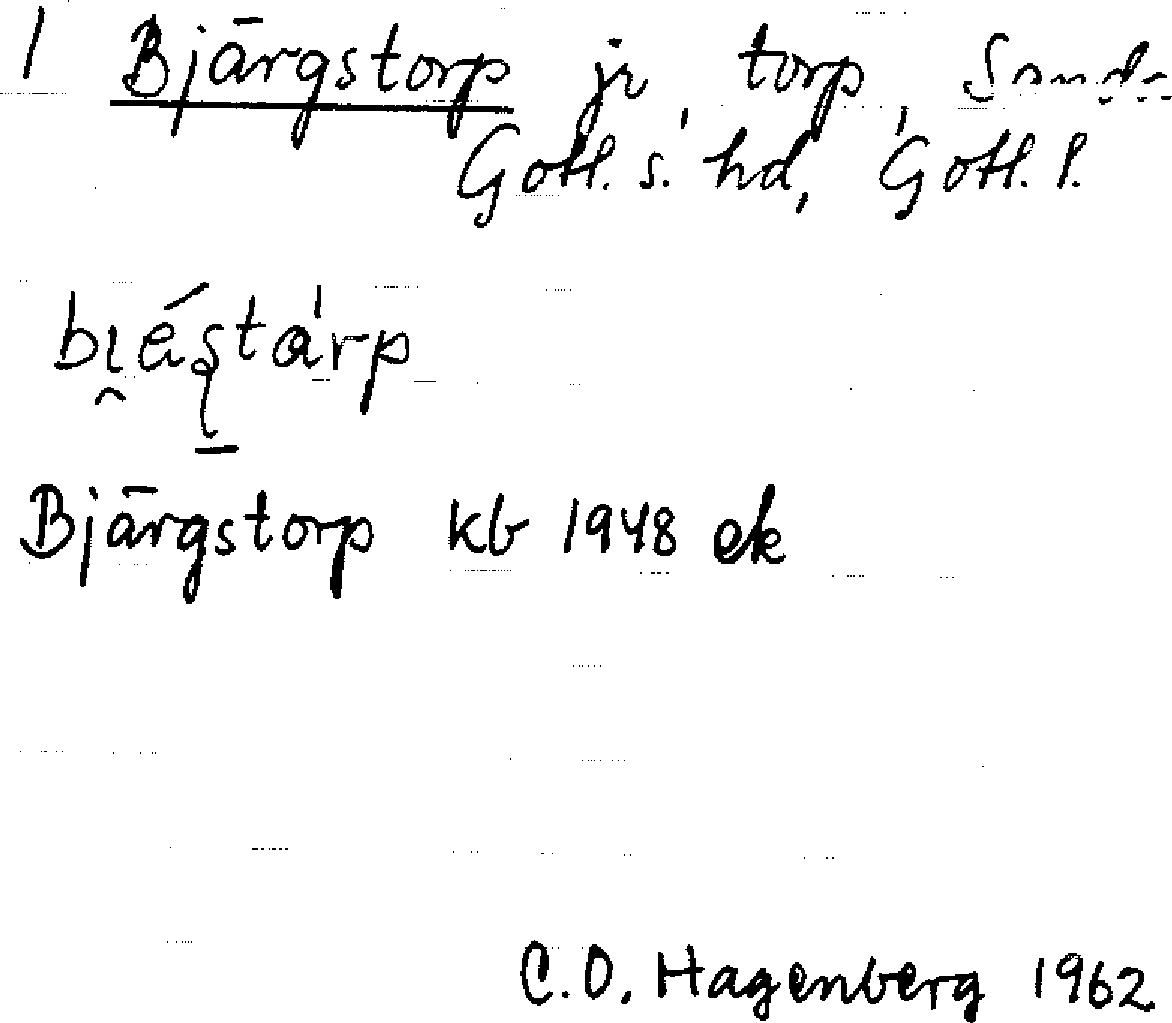 1 Bjärgstorp jr, torp, Sanda
Gotl. s. hd, Gotl. l.
Bjärgstorp kb 1948 ek
C.O. Hagenberg 1962